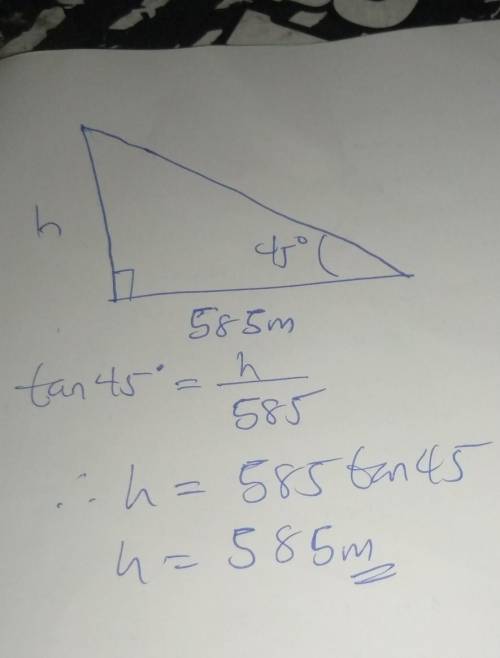 h
45°
585m
tan 45° = h/585
∴ h = 585 tan 45
h = 585m